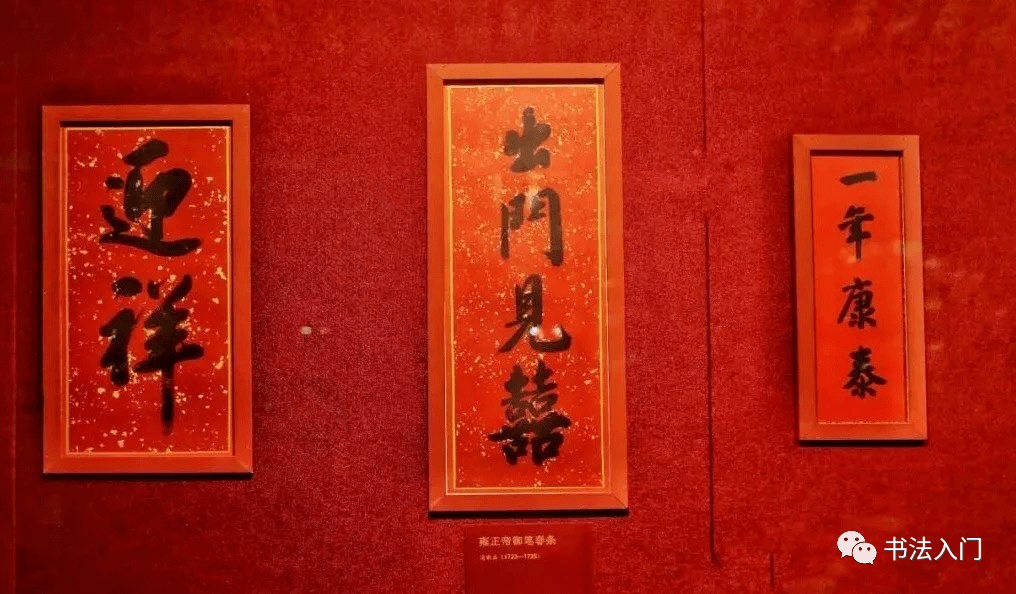 迎祥
出門見囍
一年康泰
雍正帝御笔春条
清雍正（1723—1735）
书法入门